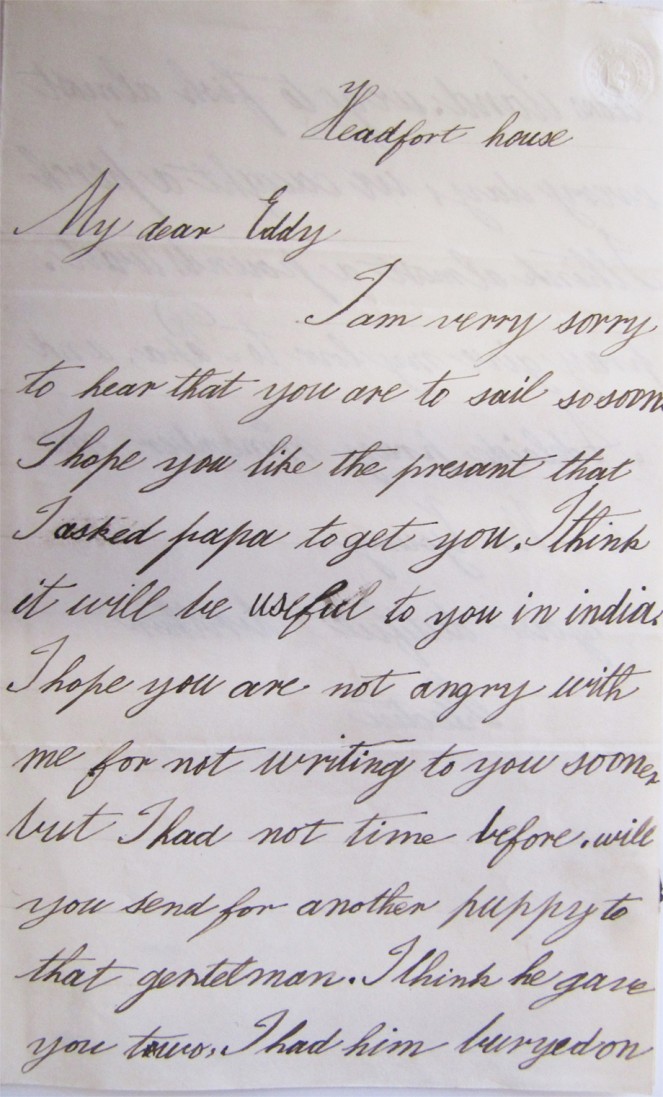 Headfort house
My dear Eddy
I am verry sorry
to hear that you are to sail so soon
I hope you like the presant that
I asked papa to get you. I think
it will be useful to you in india.
I hope you are not angry with
me for not writing to you sooner
but I had not time before. will
you send for another puppy to
that gentelman. I think he gave
you towo. I had him buryed on